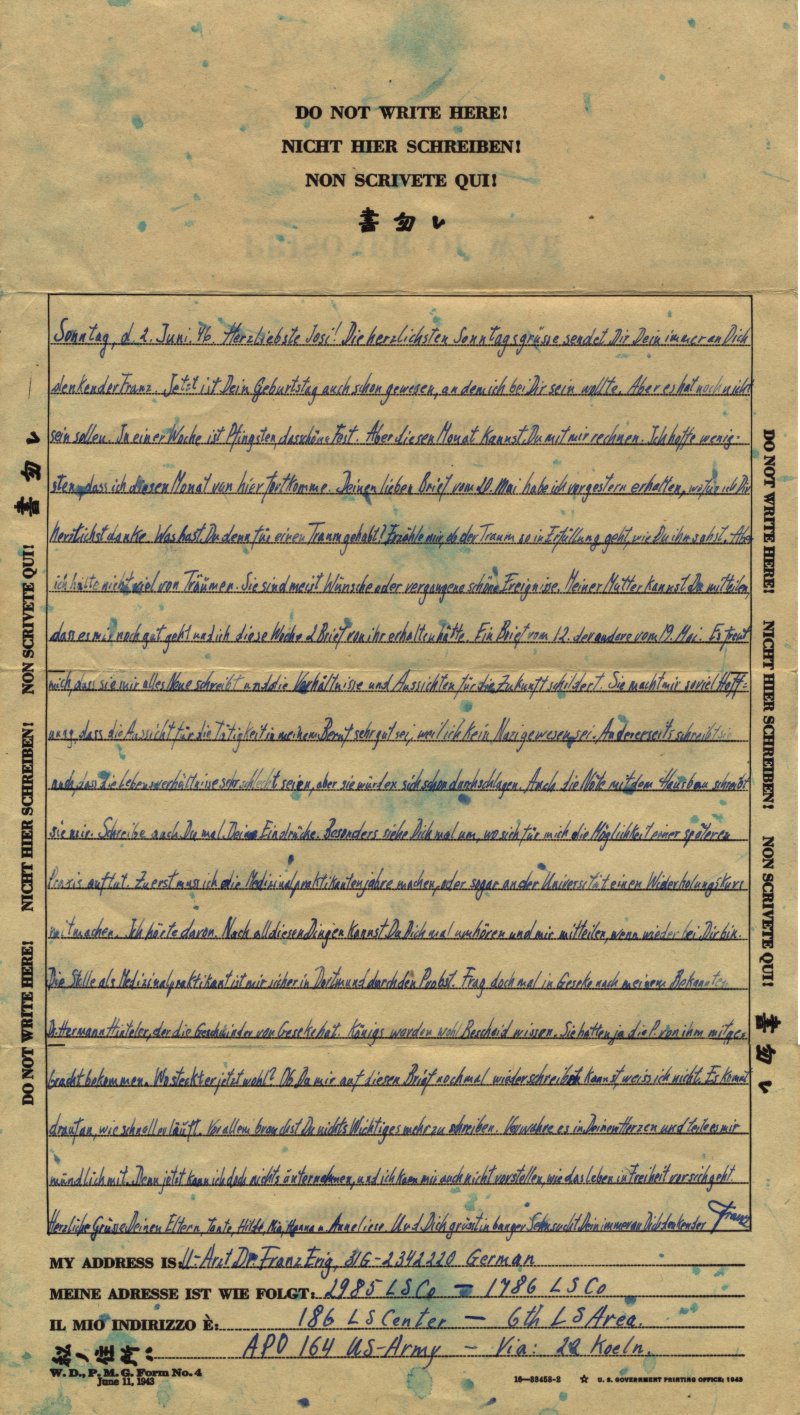 DO NOT WRITE HERE!
NICHT HIER SCHREIBEN!
NON SCRIVETE QUI!
書勿レ
Sonntag, d. 2. Juni. 46. Herzliebste Josi! Die herzlichsten Sonntagsgrüsse sendet Dir Dein immer an Dich
denkender Franz. Jetzt ist Dein Geburtstag auch schon gewesen, an dem ich bei Dir sein wollte. Aber es hat noch nicht
sein sollen. In einer Woche ist Pfingsten, das schöne Fest. Aber diesen Monat kannst Du mit mir rechnen. Ich hoffe wenig-
sten, dass ich diesen Monat von hier fortkomme. Deinen lieben Brief vom 20. Mai habe ich vorgestern erhalten, wofür ich Dir
herzlichst danke. Was hast Du denn für einen Traum gehabt? Erzähle mir, ob der Traum so in Erfüllung geht, wie Du ihm sahst. Aber
ich halte nicht viel von Träumen. Sie sind meist Wünsche oder vergangene schöne Ereignisse. Meiner Mutter kannst Du mitteilen
dass es mir noch gut geht und ich diese Woche 2 Brief von ihr erhalten hätte. Ein Brief vom 12. der andere vom 19. Mai. Es freut
mich, dass sie mir alles Neue schreibt und die Verhältnisse und Aussichten für die Zukunft schildert. Sie macht mir soviel Hoff-
nung, dass die Aussicht für die Tätigkeit in meinem Beruf sehr gut sei, weil ich kein Nazi gewesen sei. Andererseits schreibt sie
auch, dass die Lebensverhältnisse sehr schlecht seien, aber sie würden sich schon durchschlagen. Auch die Nöte mit dem Hausbau schreibt
sie mir. Schreibe auch Du mal Deine Eindrücke. Besonders siehe Dich mal um, wo sich für mich die Möglichkeit einer späteren
Praxis auftut. Zuerst muss ich die Medizinalpraktikantenjahre machen, oder sogar an der Universität einen Widerholungskurs
mitmachen. Ich hörte davon. Nach all diesen Dingen kannst Du Dich mal umhören und mir mitteilen, wenn wieder bei Dir bin.
Die Stelle als Medizinalpraktikant ist mir sicher in Dortmund durch den Probst. Frag doch mal in Geseke nach meinem Bekannten
Dr. Hermann Hinteler, der die Geschwinder von Geseke hat. Königs werden wohl Bescheid wissen. Sie hatten ja die P. von ihm mitge-
bracht bekommen. Wo steckt er jetzt wohl? Ob Du mir auf diesen Brief nochmal wieder schreiben kannst, weiss ich nicht. Es kommt
drauf an, wie schnell er läuft. Vor allem brauchst Du nichts Wichtiges mehr zu schreiben. Verwahre es in Deinem Herzen und teile es mir
mündlich mit. Denn jetzt kann ich doch nichts unternehmen, und ich kann mir auch nicht vorstellen, wie das Leben in Freiheit vor sich geht.
Herzliche Grüsse Deinen Eltern, Tante, Hilde, Mia, Hanna u. Anneliese. Und Dich grüsst in banger Sehnsucht Dein immer an Dich denkender Franz
MY ADDRESS IS: U-Arzt Dr. Franz Erig, 31G-2342220 German
MEINE ADRESSE IST WIE FOLGT: 2985 LS Co — 1786 LS Co
IL MIO INDIRIZZO È: 186 LS Center — 6th LS Area.
APO 164 US-Army — Via: 22 Koeln.
W. D., P. M. G. Form No. 4
June 11, 1943
16—33458-2 ☆ U. S. GOVERNMENT PRINTING OFFICE: 1943
DO NOT WRITE HERE! NICHT HIER SCHREIBEN! NON SCRIVETE QUI! 書勿レ
DO NOT WRITE HERE! NICHT HIER SCHREIBEN! NON SCRIVETE QUI! 書勿レ